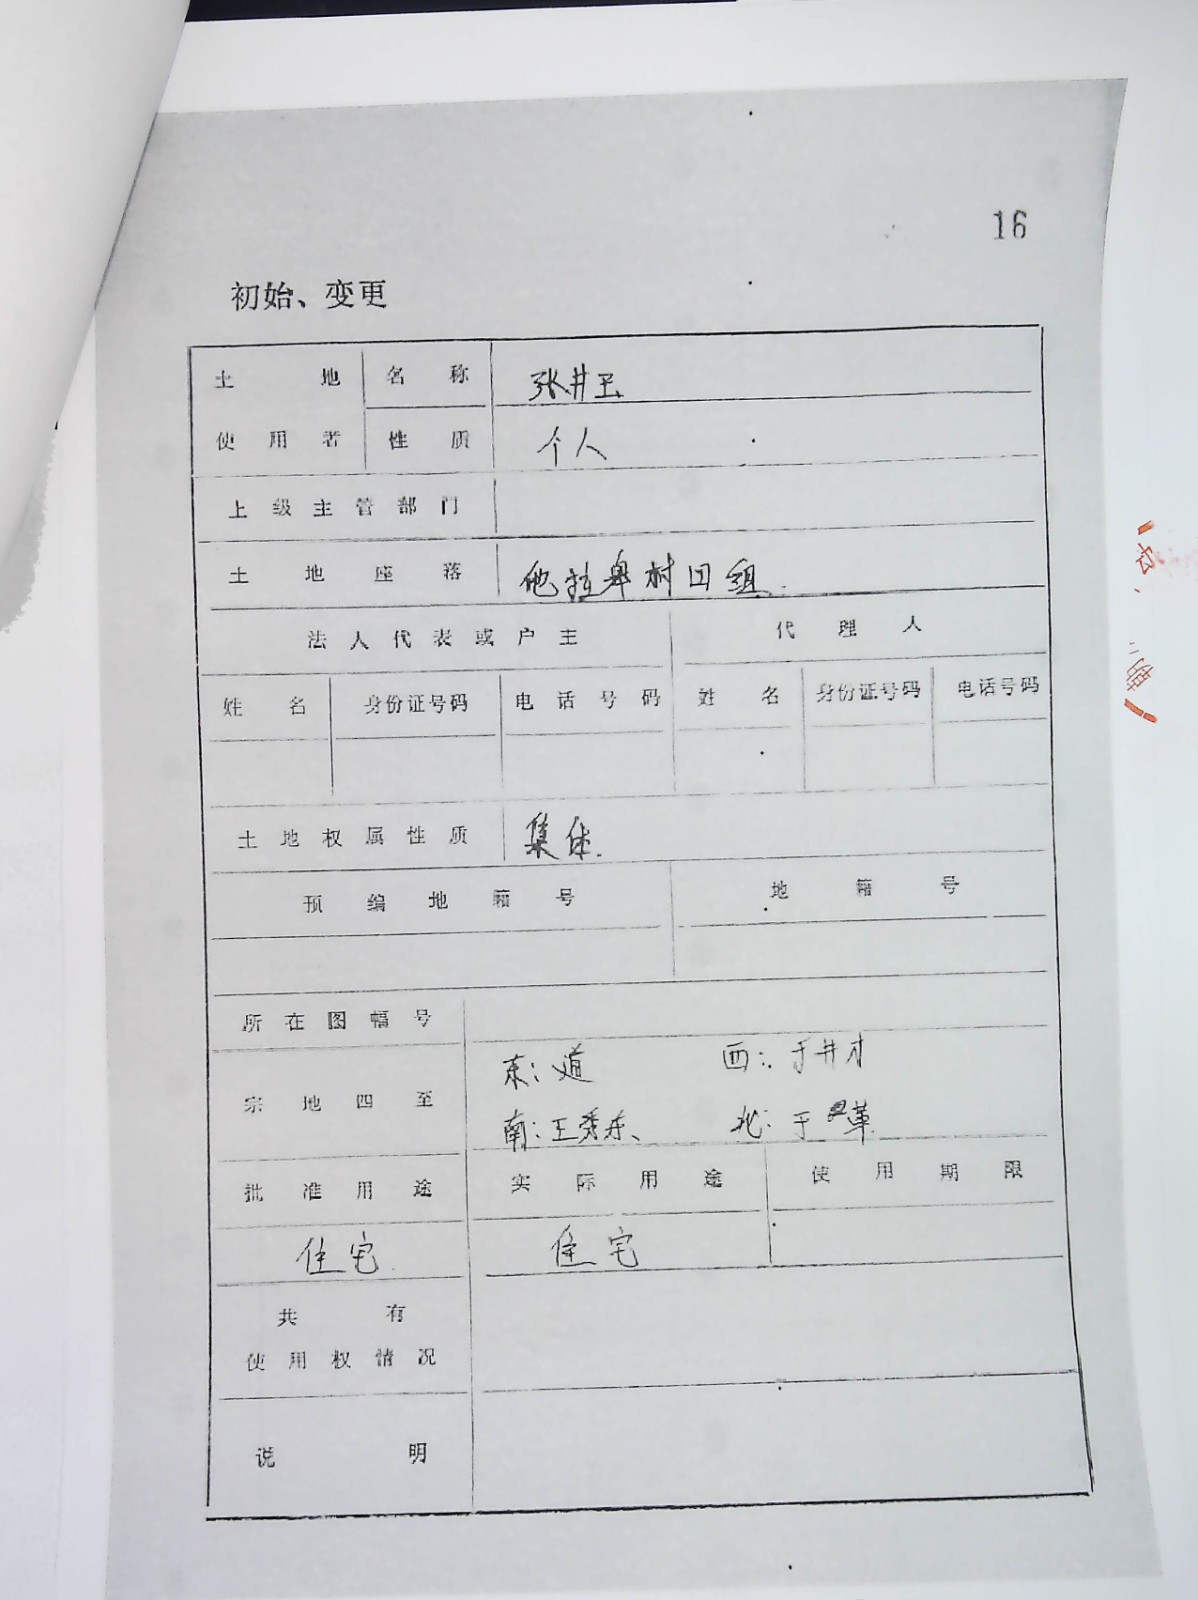 16
初始、变更
土地 名称 张井玉
使用者 性质 个人
上级主管部门
土地座落 他拉皋村四组.
法人代表或户主 代理人
姓名 身份证号码 电话号码 姓名 身份证号码 电话号码
土地权属性质 集体.
预编地籍号 地籍号
所在图幅号
宗地四至 东:道 西:于井才
南:王秀东、 北:于
批准用途 实际用途 使用期限
住宅. 住宅
共有
使用权情况
说明